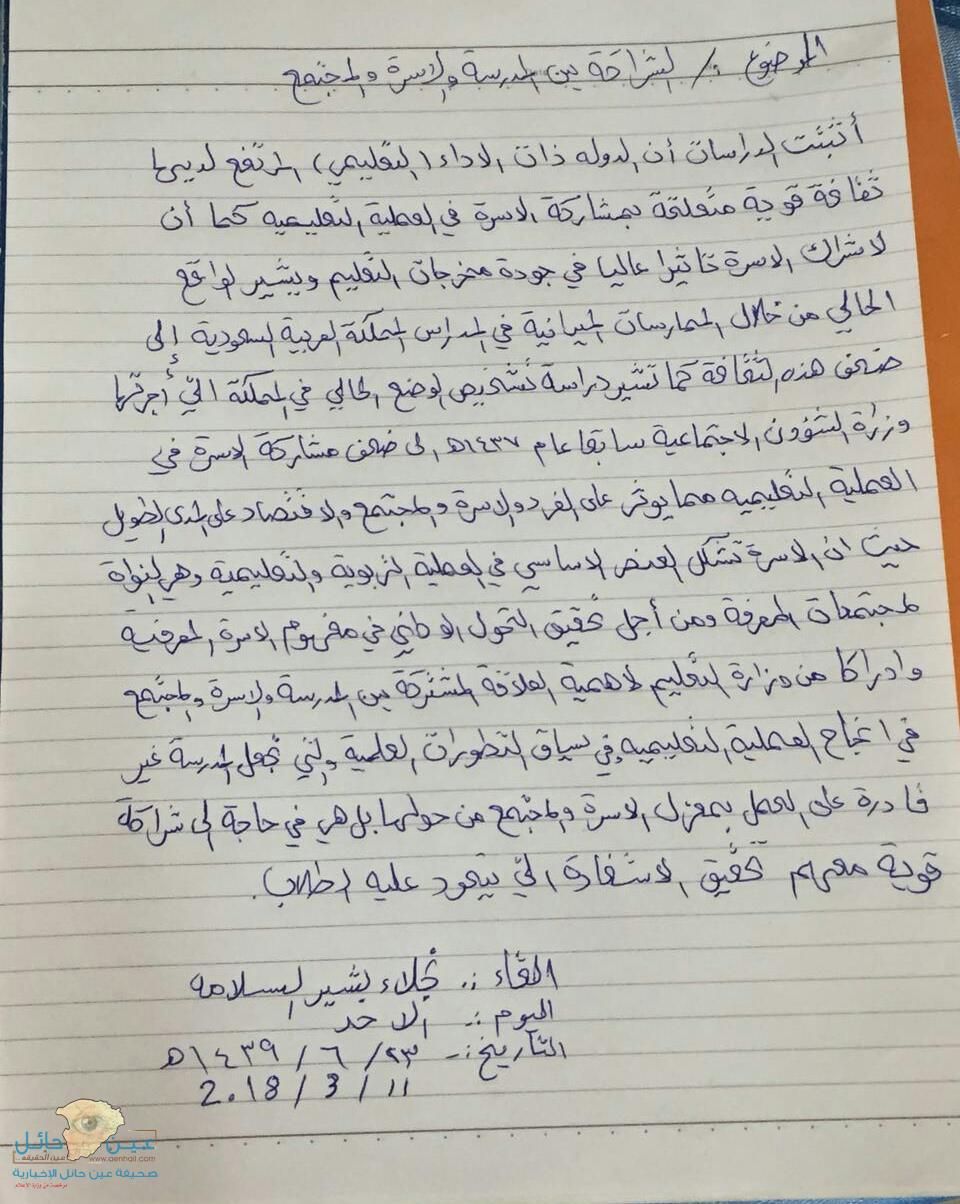 الموضوع :/ الشراكة بين المدرسة والاسرة والمجتمع
أثبتت الدراسات أن الدوله ذات الاداء (التعليمي) المرتفع لديها
ثقافة قوية متعلقة بمشاركة الاسرة في العملية التعليميه كما أن
لاشراك الاسرة تاثيرا عاليا في جودة مخرجات التعليم ويشير الواقع
الحالي من خلال الممارسات الميدانية في المدارس المملكة العربية السعودية إلى
ضعف هذه الثقافة كما تشير دراسة تشخيص الوضع الحالي في المملكة التي أجرتها
وزارة الشؤون الاجتماعية سابقا عام ١٤٣٧هـ الى ضعف مشاركة الاسرة في
العملية التعليميه مما يوثر على الفرد والاسرة والمجتمع والاقتصاد على المدى الطويل
حيث ان الاسرة تشكل العنصر الاساسي في العملية التربوية والتعليمية وهي النواة
لمجتمعات المعرفة ومن أجل تحقيق التحول الوطني في مفهوم الاسرة المعرفيه
وادراكا من وزارة التعليم لاهمية العلاقة المشتركة بين المدرسة والاسرة والمجتمع
في انجاح العملية التعليميه وفي سياق التطورات العلمية والتي تجعل المدرسة غير
قادرة على العمل بمعزل الاسرة والمجتمع من حولها بل هي في حاجة الى شراكة
قوية معهم تحقيق الاستفادة التي تعود عليه الطلاب.
القاء :. نجلاء بشير السلامه
اليوم :- الاحد
التاريخ :- ٢٣ / ٦ / ١٤٣٩هـ
11 / 3 / 2018
عين حائل
عين الحقيقة..
www.aenhail.com
صحيفة عين حائل الإخبارية
مرخصة من وزارة الاعلام